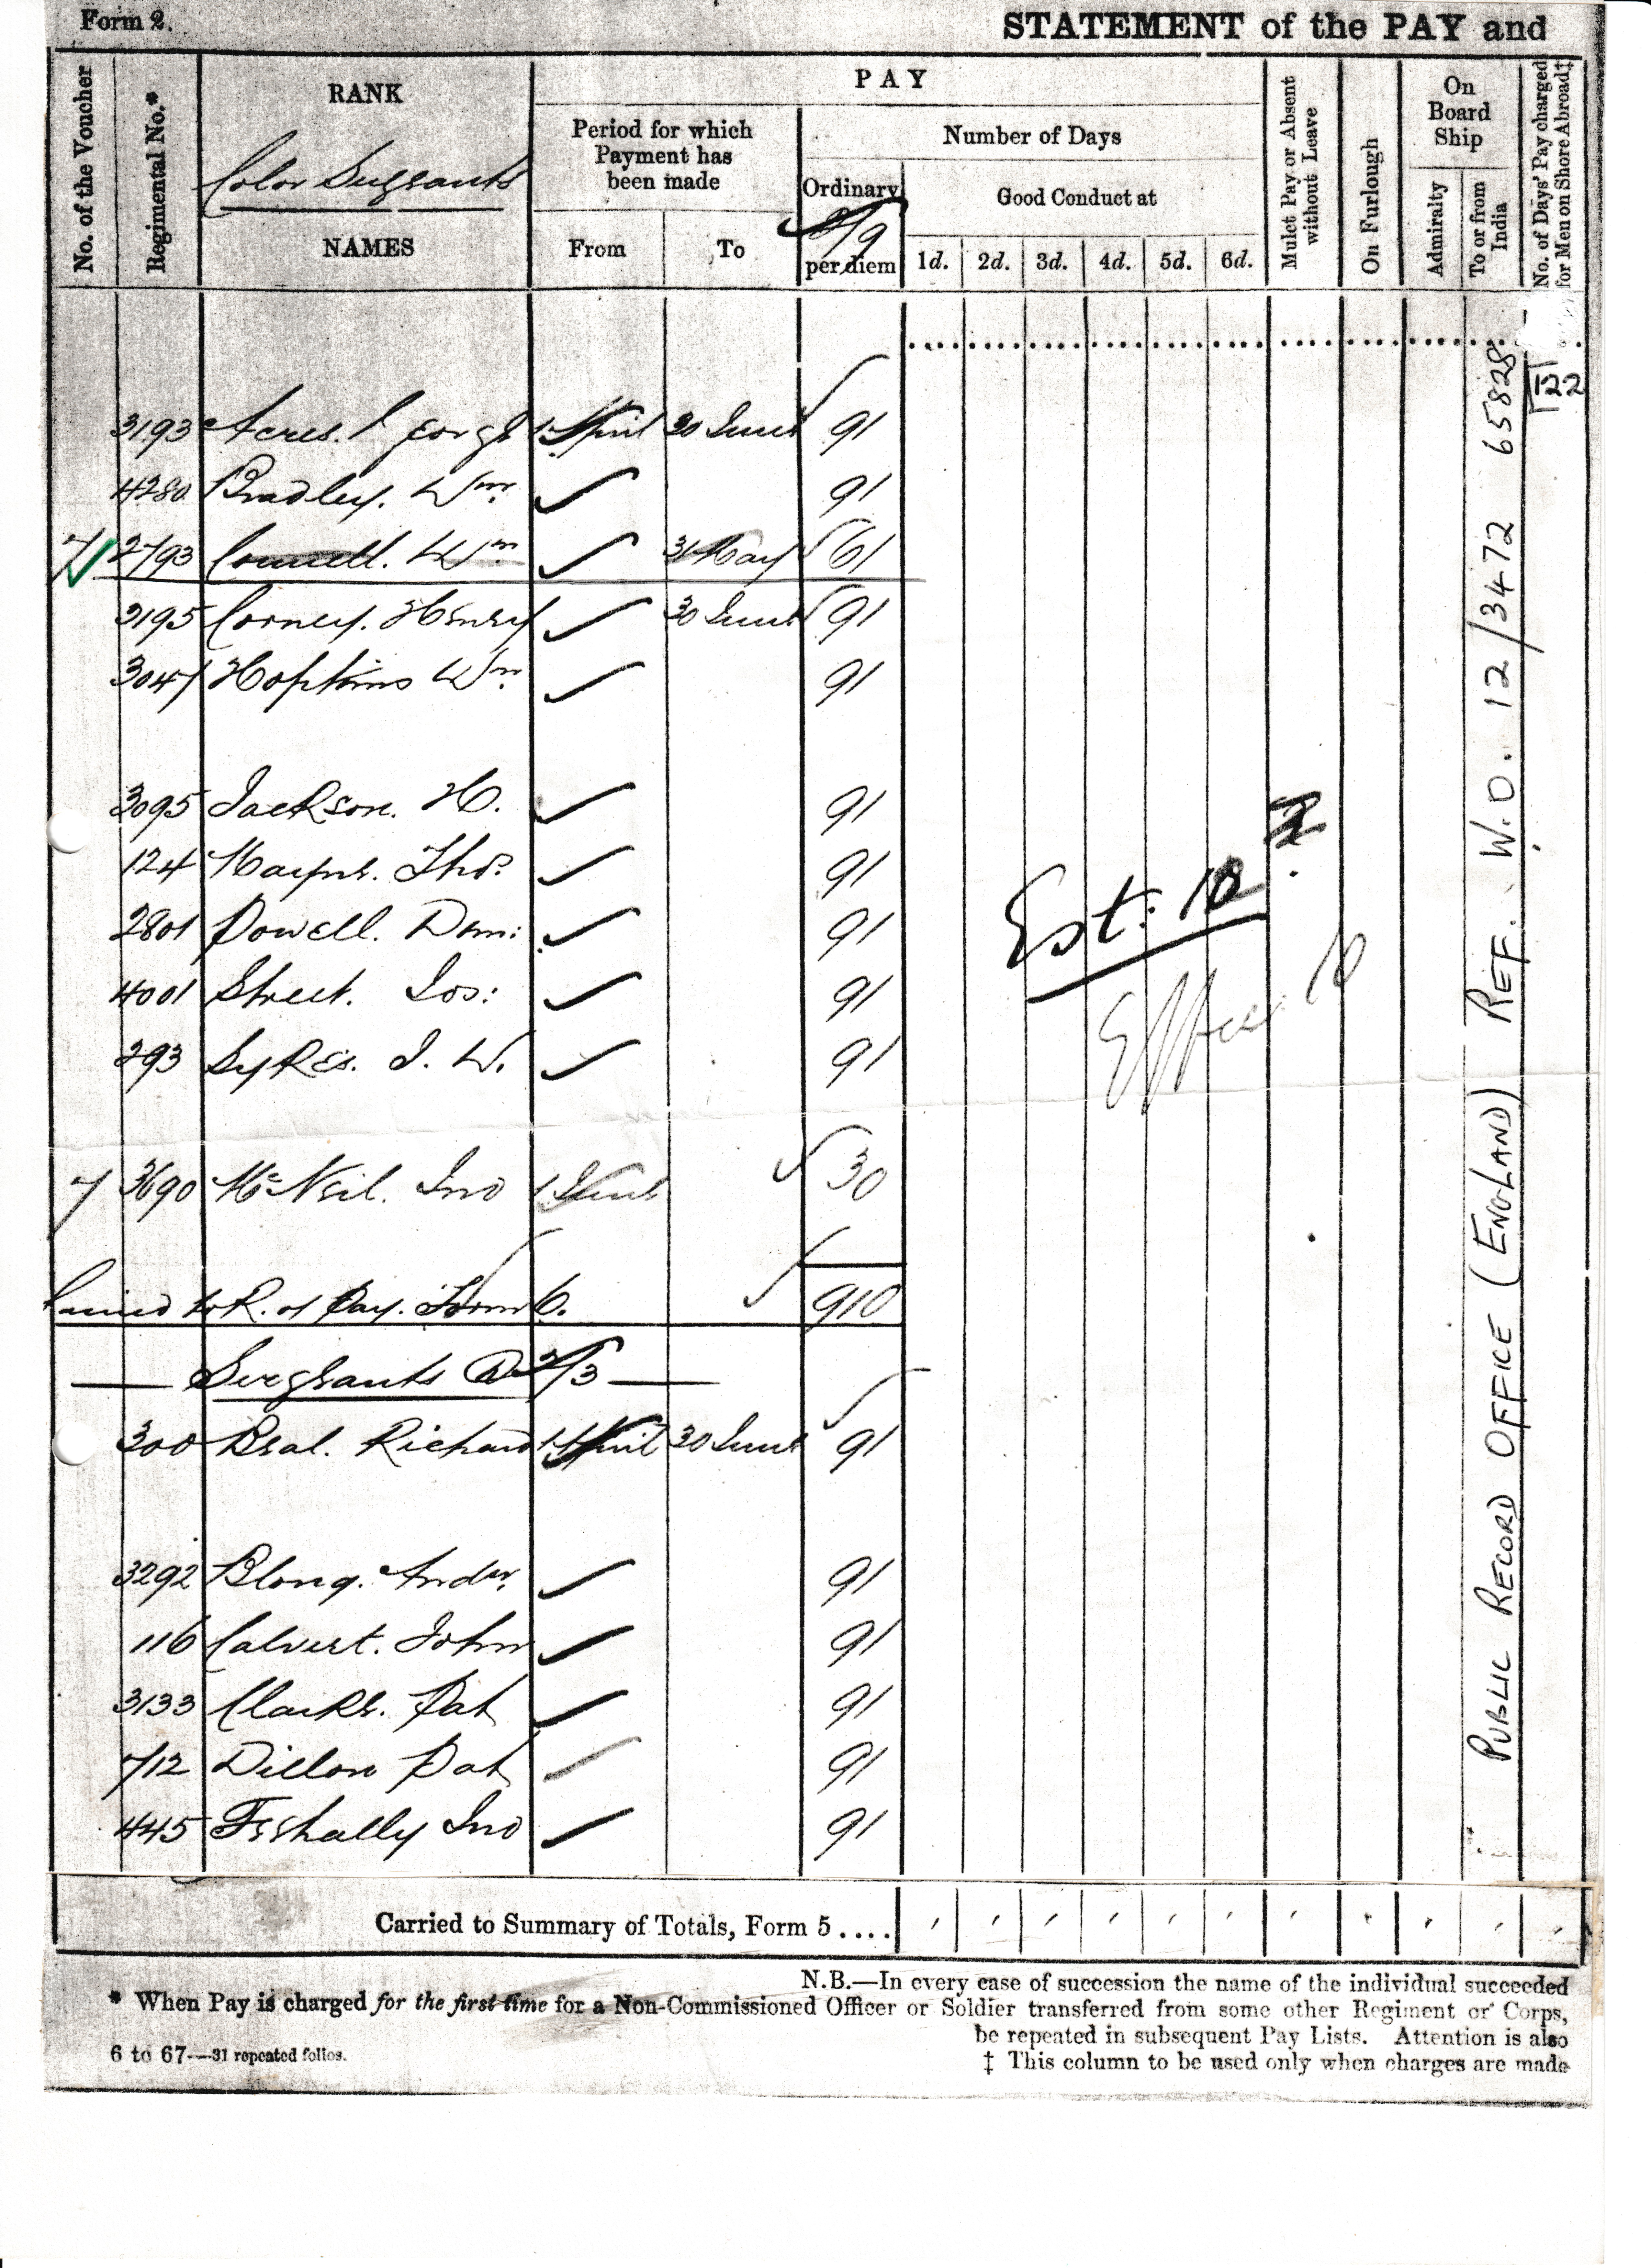 Form 2.
STATEMENT of the PAY and
No. of the Voucher
Regimental No.*
RANK
Color Sergeants
NAMES
PAY
Period for which Payment has been made
From
To
Number of Days
Ordinary
/9
per diem
Good Conduct at
1d. 2d. 3d. 4d. 5d. 6d.
Mulct Pay or Absent without Leave
On Furlough
On Board Ship
Admiralty
To or from India
No. of Days' Pay charged for Men on Shore Abroad‡
122
3193 Acres. George 1 April 30 June 91
4280 Bradley. Wm. 91
7 2793 Connell. Wm 31 May 61
3195 Corney. Henry 30 June 91
3047 Hopkins Wm. 91
3095 Jackson. H. 91
124 Mayne. Thos. 91
2801 Powell. Dm: 91
4001 Street. Jos: 91
293 Sykes. J. W. 91
Est: 10
Effec. 10
7 3690 McNeil. Jno 1 June 30
Carried to R. of Pay. Form 6. 910
Sergeants @ 2/3
300 Beal. Richard 1 April 30 June 91
3292 Blong. Andw. 91
116 Calvert. John 91
3133 Clarke. Pat 91
712 Dillon Pat 91
445 Feehally Jno 91
PUBLIC RECORD OFFICE (ENGLAND) REF. W.O. 12/3472 65828
Carried to Summary of Totals, Form 5....
N.B.—In every case of succession the name of the individual succeeded
* When Pay is charged for the first time for a Non-Commissioned Officer or Soldier transferred from some other Regiment or Corps,
be repeated in subsequent Pay Lists. Attention is also
6 to 67—31 repeated folios.
‡ This column to be used only when charges are made